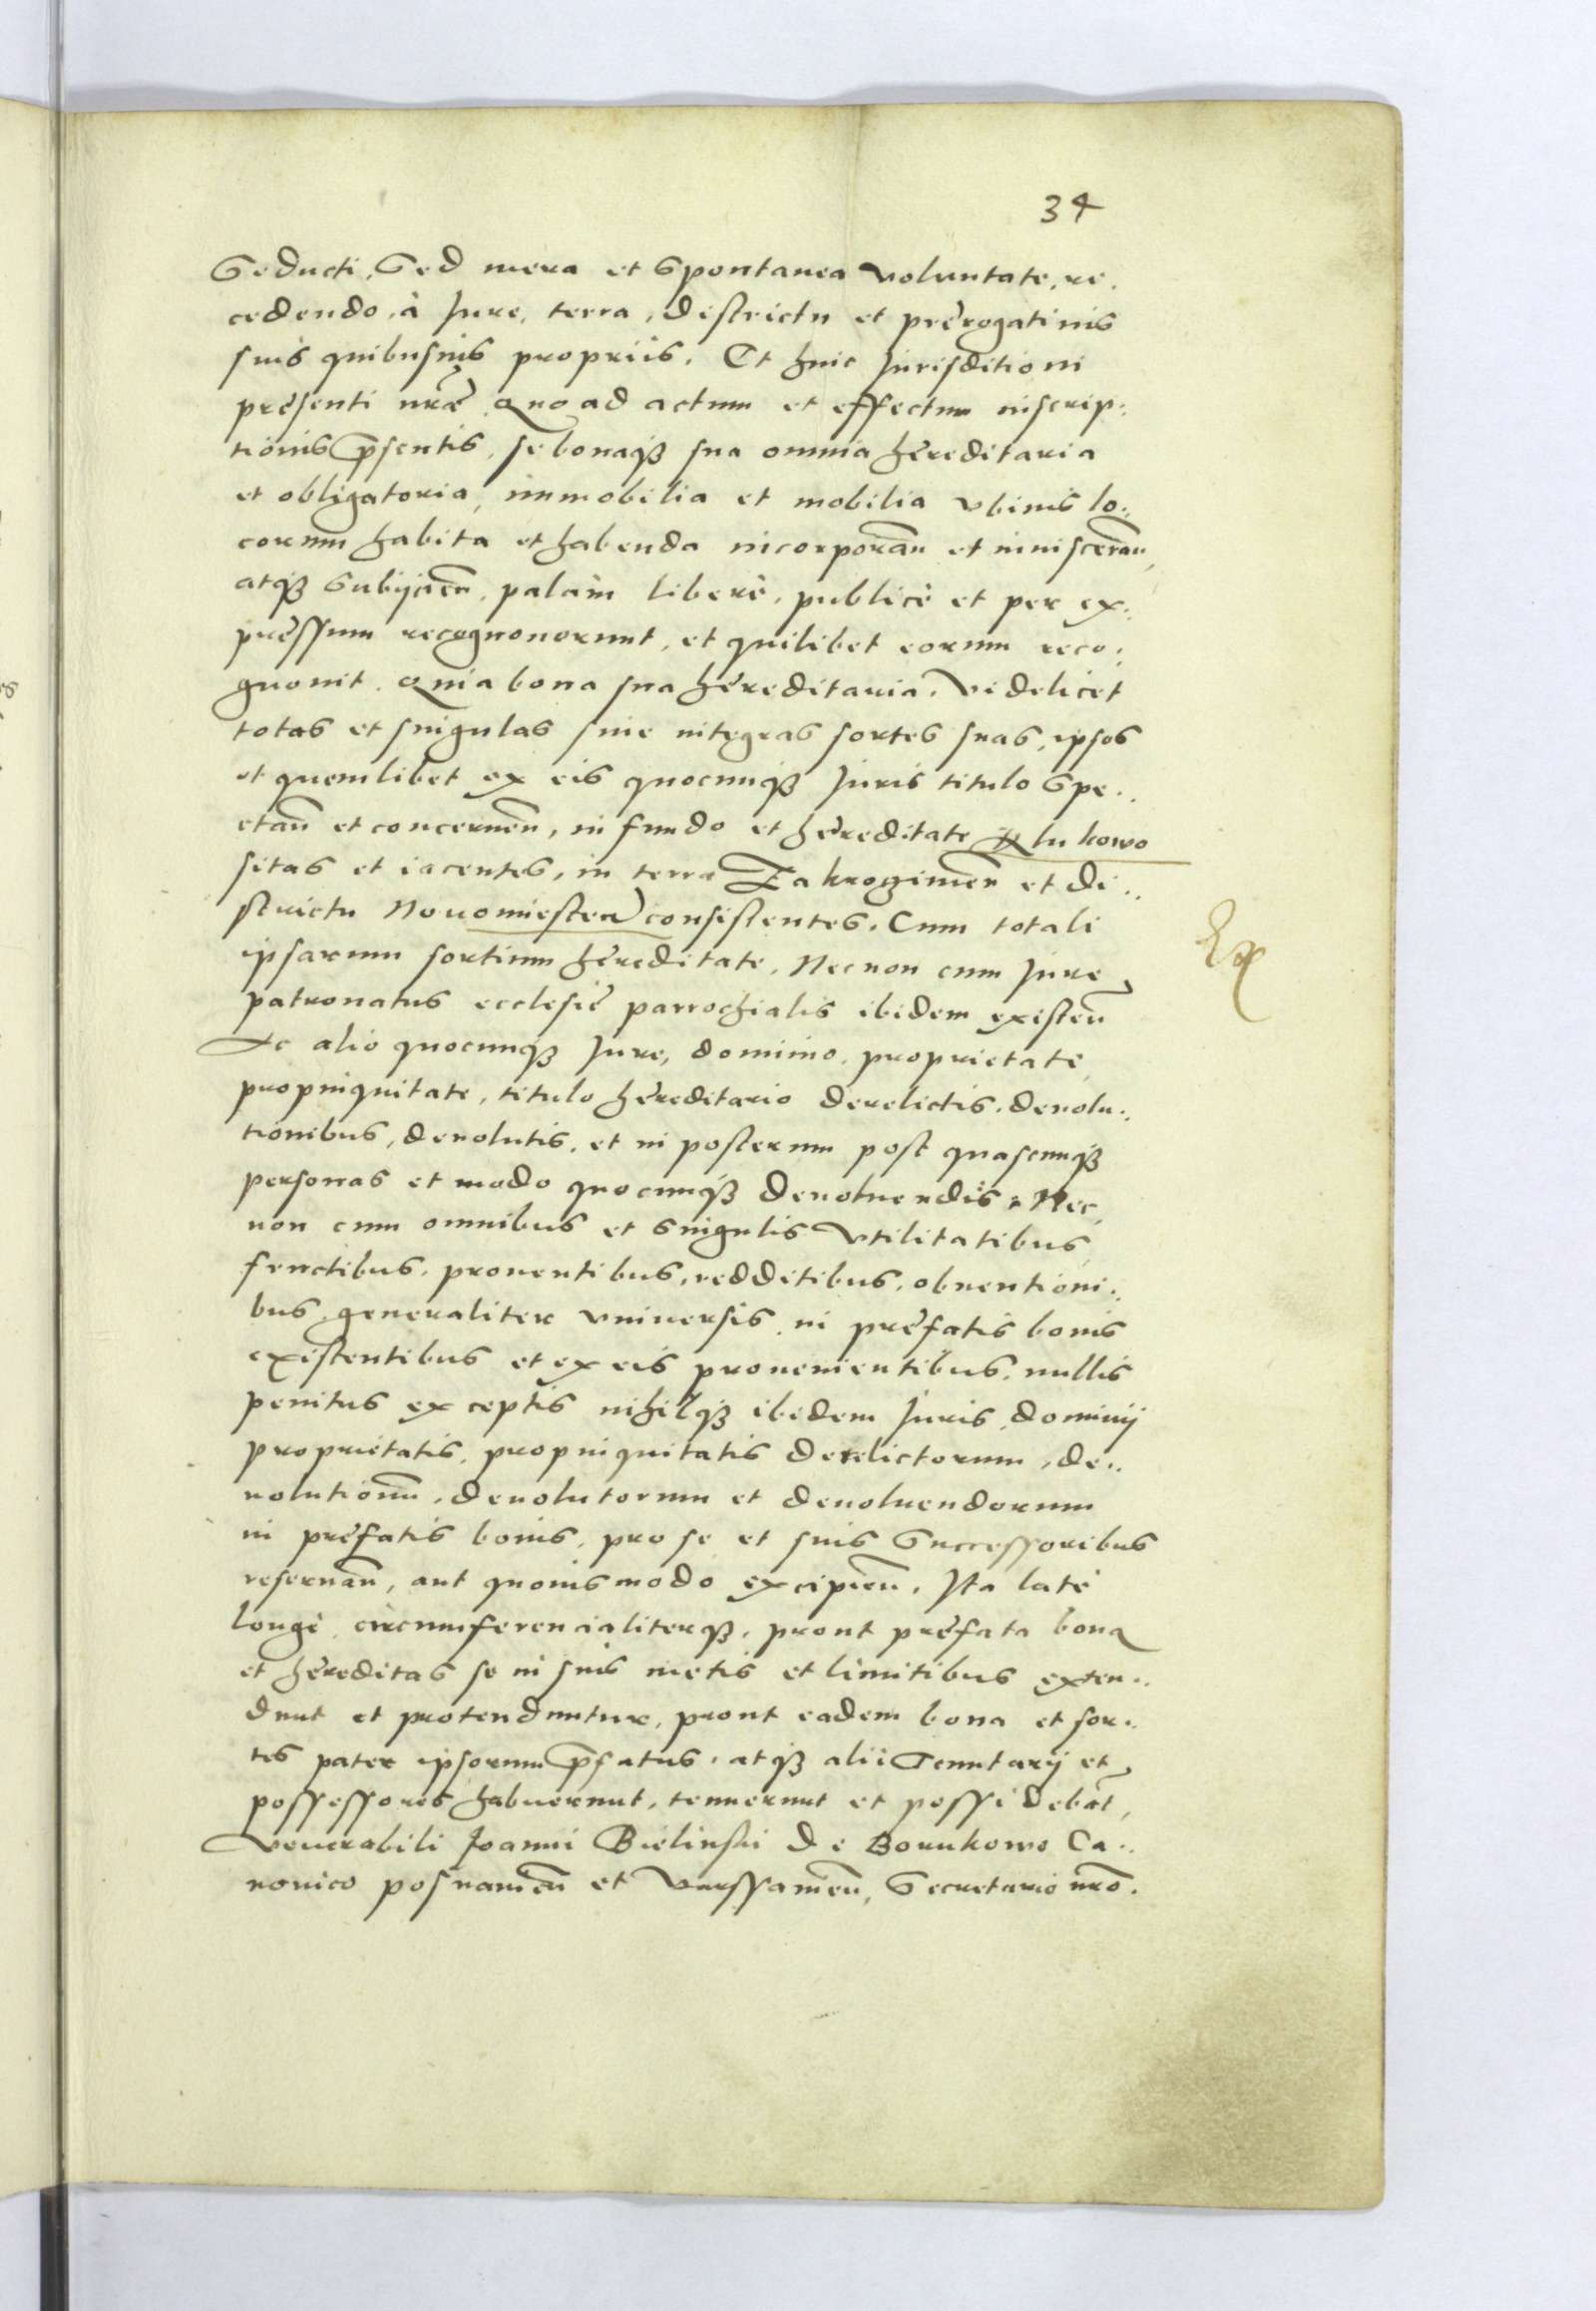 34
Seducti, Sed mera et Spontanea voluntate, re.
cedendo, à Jure, terra, districtu et prerogatiuis
suis quibusuis propriis. Et huic Jurisditioni
presenti nrae Quo ad actum et effectum inscrip:
tionis p̄sentis, se bonaqȝ sua omnia hereditaria
et obligatoria, immobilia et mobilia vbiuis lo:
corum habita et habenda incorporan̄ et inuisceran̄,
atqȝ Subijcien̄, palam liberè, publicè et per ex:
pressum recognouerunt, et quilibet eorum reco:
gnouit. Quia bona sua hereditaria, videlicet
totas et singulas siue integras sortes suas, ipsos
et quemlibet ex eis quocunqȝ Juris titulo Spe:
ctan̄ et concernen̄, in fundo et hereditate lukowo
sitas et iacentes, in terra Zakrogimen̄ et di:
strictu Nouomiesten̄ consistentes. Cum totali
ipsarum sortium hereditate, Necnon cum Jure
Ex
patronatus ecclesie parrochialis ibidem existen̄
Ac alio quocunqȝ Jure, dominio, proprietate,
propinquitate, titulo hereditario derelictis, deuolu:
tionibus, deuolutis, et in posterum post quascunqȝ
personas et modo quocunqȝ deuoluendis, Nec
non cum omnibus et Singulis vtilitatibus,
fructibus, prouentibus, redditibus, obuentioni:
bus generaliter vniuersis in prefatis bonis
existentibus et ex eis prouenientibus, nullis
penitus exceptis nihilqȝ ibidem Juris, dominij
proprietatis, propinquitatis derelictorum, de:
uolutionum, deuolutorum et deuoluendorum
in prefatis bonis, pro se et suis Successoribus
reseruan̄, aut quouismodo excipien̄. Ita latè
longè, circumferencialiterqȝ, prout prefata bona
et hereditas se in suis metis et limitibus exten:
dunt et protenduntur, prout eadem bona et sor:
tes pater ipsorum p̄fatus, atqȝ alii Tenutarij et
possessores habuerunt, tenuerunt et possidebāt,
Venerabili Joanni Bielinski de Borukowo Ca:
nonico posnanien̄ et Varssauien̄, Secretario nrō.